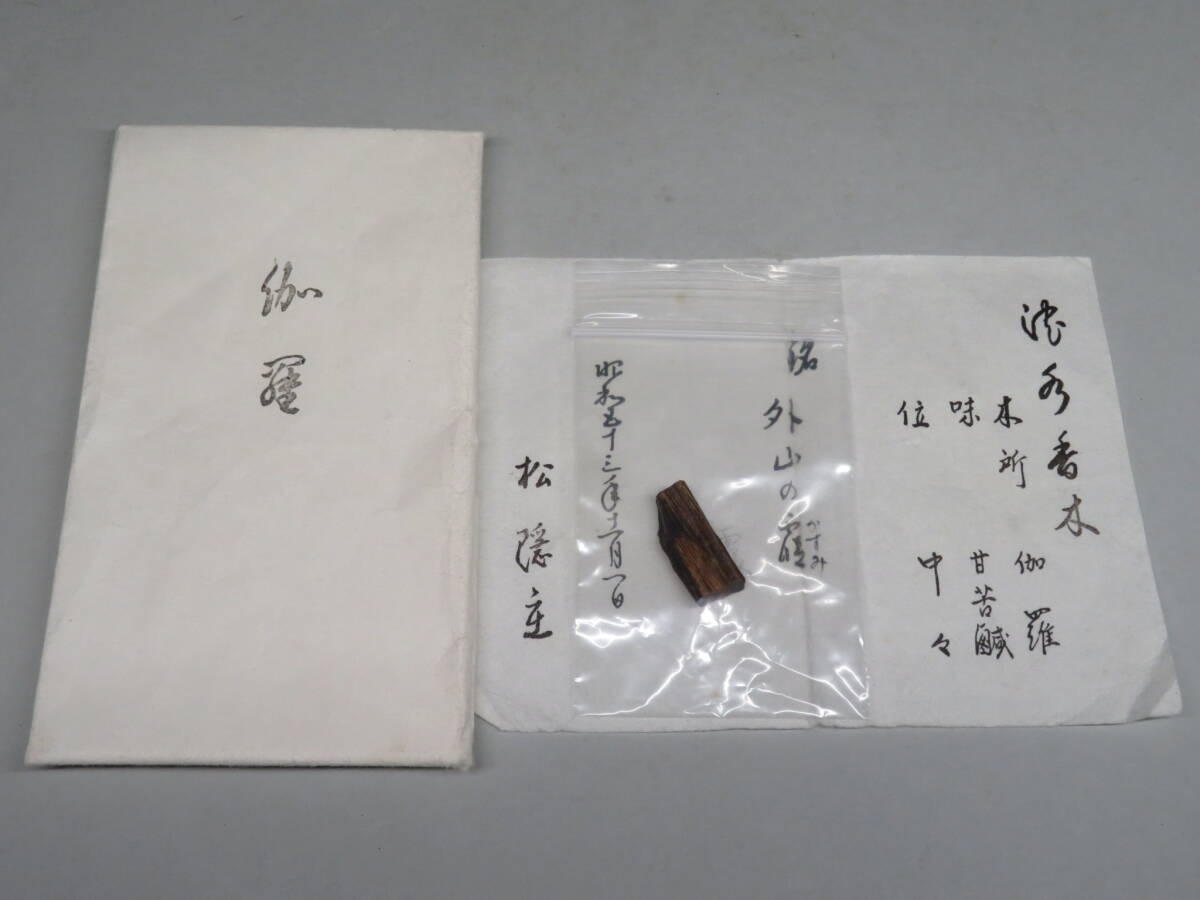 伽羅
沈水香木
木所 伽羅
味 甘苦鹹
位 中々
銘 外山の霞
かすみ
昭和五十三年十一月一日
松隠主